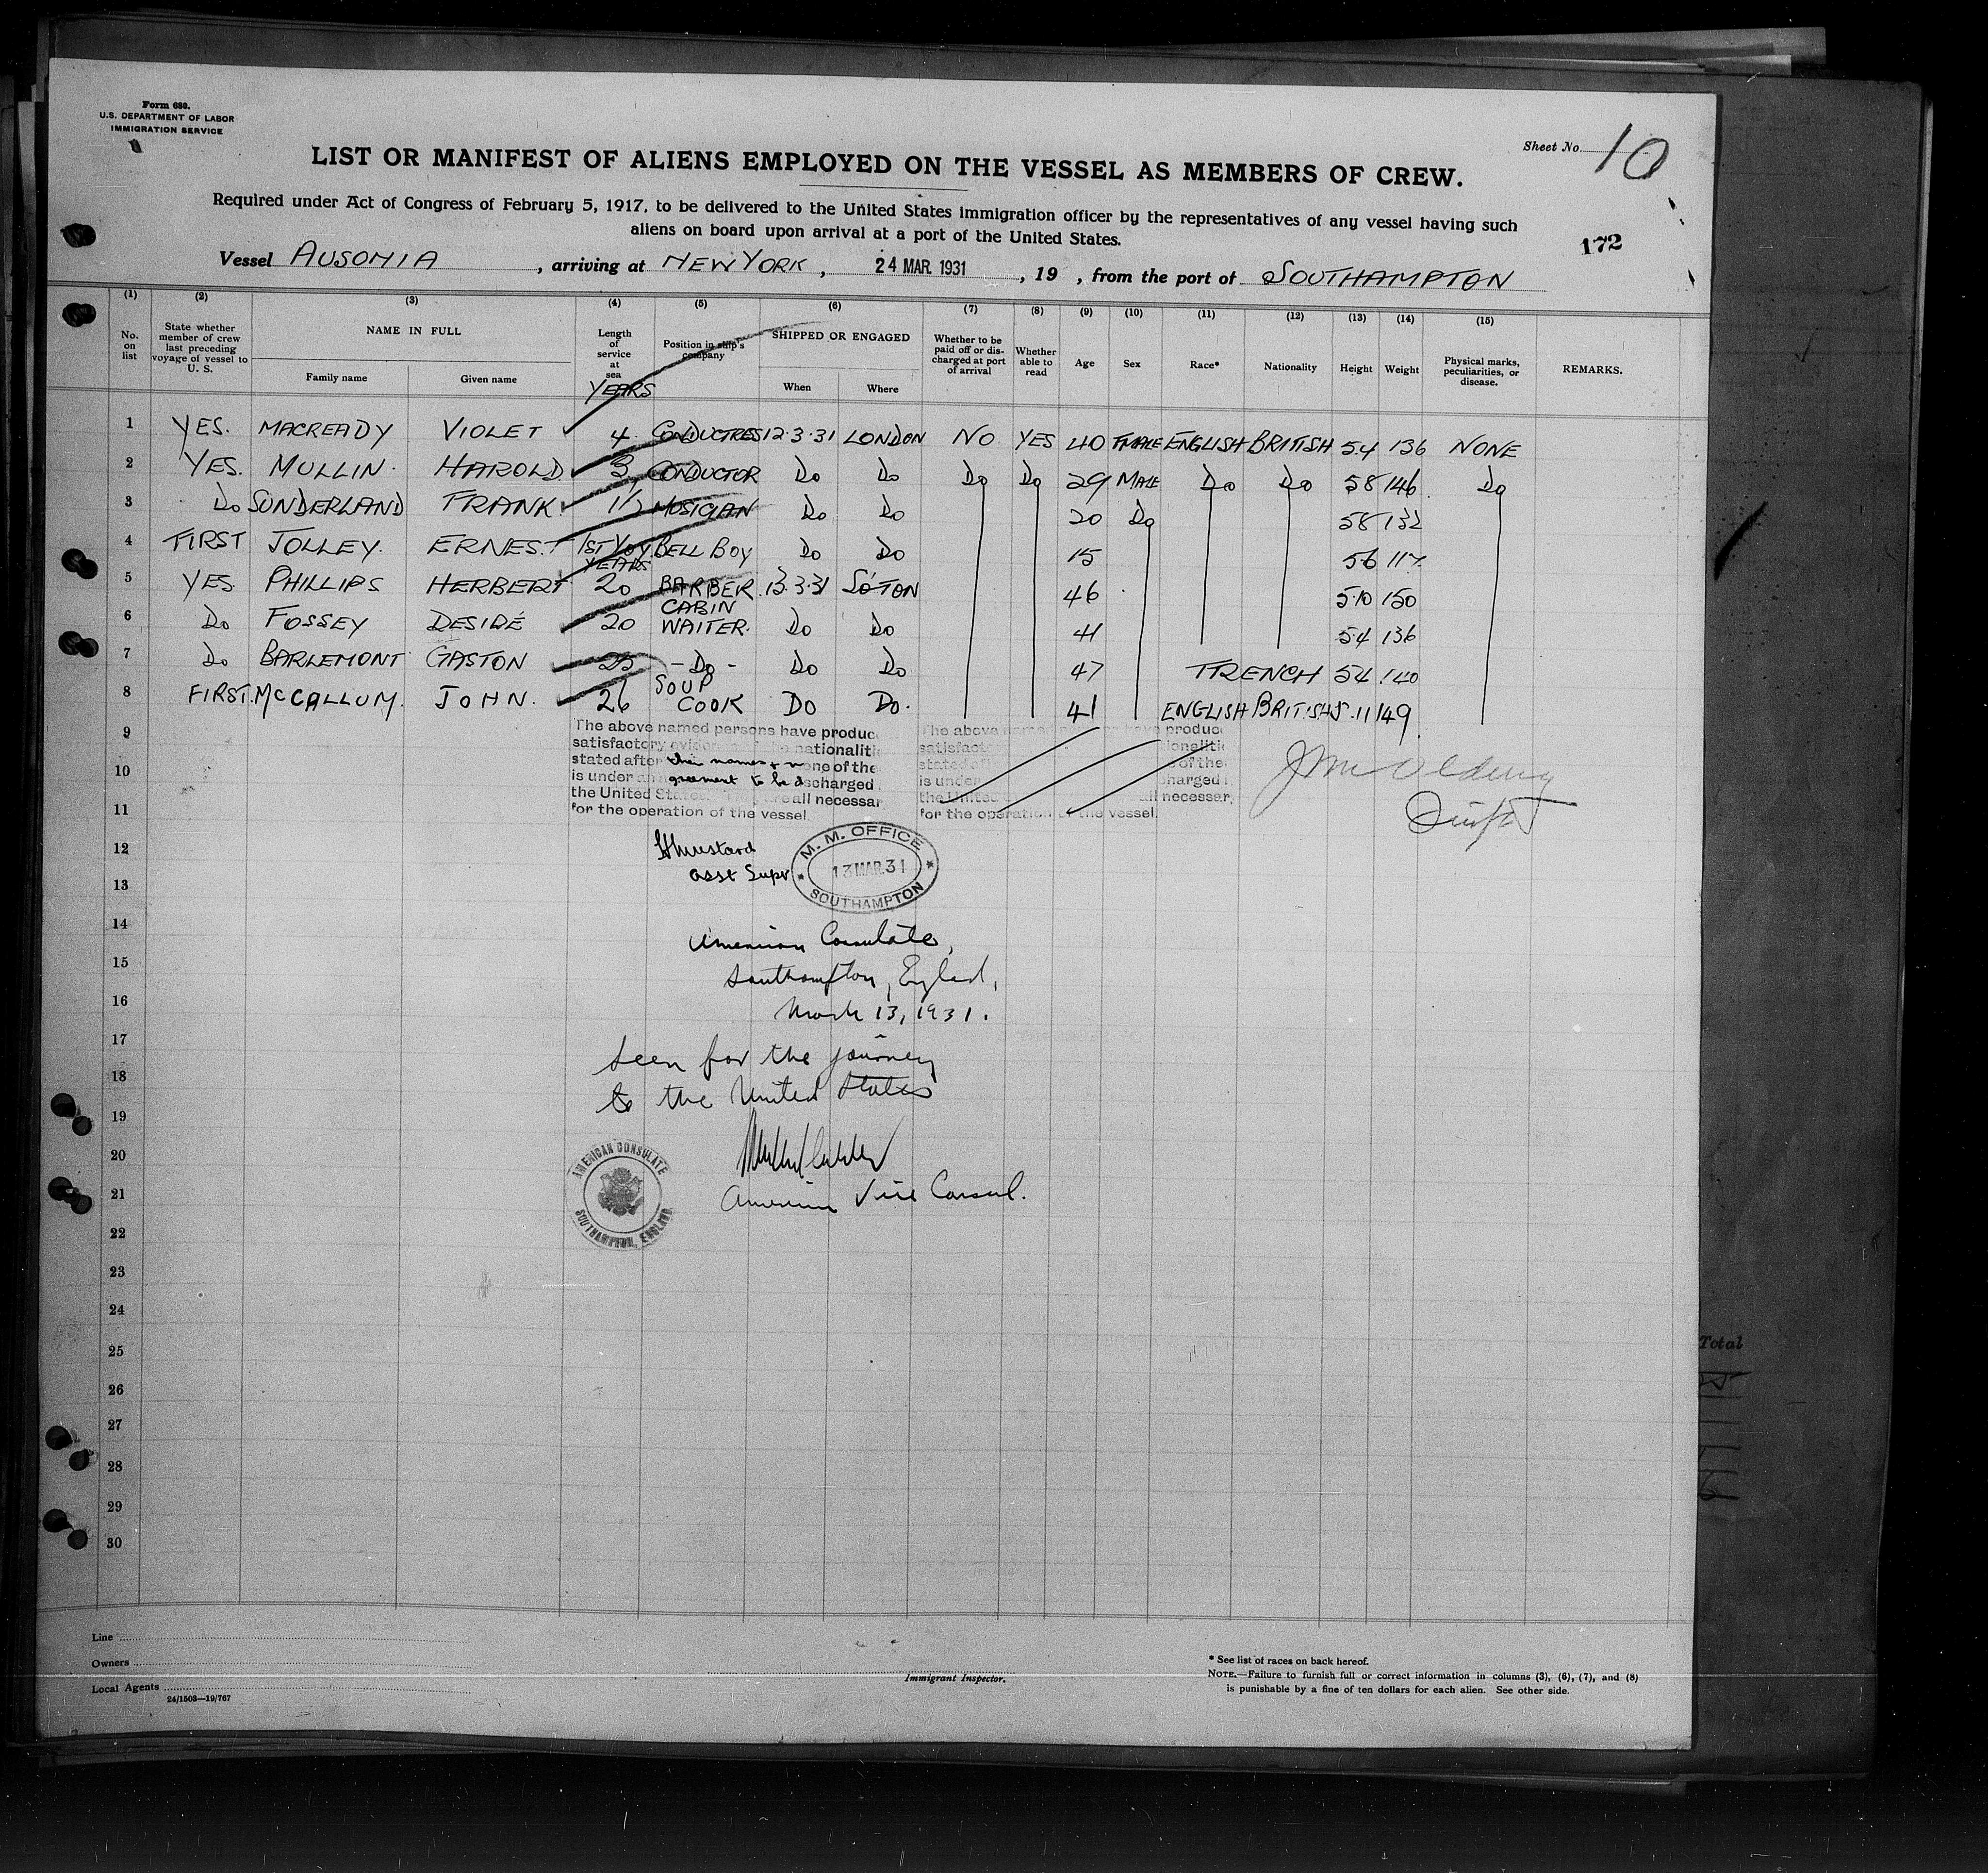 Form 680.
U.S. DEPARTMENT OF LABOR
IMMIGRATION SERVICE
Sheet No. 10
LIST OR MANIFEST OF ALIENS EMPLOYED ON THE VESSEL AS MEMBERS OF CREW.
Required under Act of Congress of February 5, 1917, to be delivered to the United States immigration officer by the representatives of any vessel having such
aliens on board upon arrival at a port of the United States.
172
Vessel AUSONIA, arriving at NEW YORK, 24 MAR. 1931, 19 , from the port of SOUTHAMPTON
(1) (2) (3) (4) (5) (6) (7) (8) (9) (10) (11) (12) (13) (14) (15)
No. on list
State whether member of crew last preceding voyage of vessel to U. S.
NAME IN FULL
Family name Given name
Length of service at sea
YEARS
Position in ship's company
SHIPPED OR ENGAGED
When Where
Whether to be paid off or discharged at port of arrival
Whether able to read
Age Sex Race* Nationality Height Weight
Physical marks, peculiarities, or disease.
REMARKS.
1 YES. MACREADY VIOLET 4 CONDUCTRES 12.3.31 LONDON NO YES 40 FMALE ENGLISH BRITISH 5.4 136 NONE
2 YES. MULLIN. HAROLD. 3 CONDUCTOR Do Do Do Do 29 MALE Do Do 58 146 Do
3 Do SUNDERLAND FRANK 1½ MUSICIAN Do Do 20 Do 58 132
4 FIRST JOLLEY. ERNEST 1ST VOY BELL BOY Do Do 15 56 117
YEARS
5 YES PHILLIPS HERBERT 20 BARBER 13.3.31 SO'TON 46 5.10 150
6 Do FOSSEY DESIDÉ 20 CABIN WAITER. Do Do 41 5.4 136
7 Do BARLEMONT GASTON 25 -Do- Do Do 47 FRENCH 54 140
8 FIRST. McCALLUM. JOHN. 26 SOUP COOK DO Do. 41 ENGLISH BRITISH 5.11 149
9
10
11
12
13
14
15
16
17
18
19
20
21
22
23
24
25
26
27
28
29
30
The above named persons have produc
satisfactory evidence of the nationaliti
stated after their names & none of the
is under an agreement to be discharged
the United States. are all necessar
for the operation of the vessel.
The above named persons have produc
satisfact ionaliti
stated aft of the
is under charged
the United all necessar,
for the operation of the vessel.
asst Supt
M. M. OFFICE
13 MAR. 31
SOUTHAMPTON
American Consulate,
Southampton, England,
March 13, 1931.
Seen for the journey
to the United States
American Vice Consul.
AMERICAN CONSULATE
SOUTHAMPTON, ENGLAND
Total
Line
Owners
Local Agents
24/1503—19/767
Immigrant Inspector.
* See list of races on back hereof.
NOTE.—Failure to furnish full or correct information in columns (3), (6), (7), and (8)
is punishable by a fine of ten dollars for each alien. See other side.